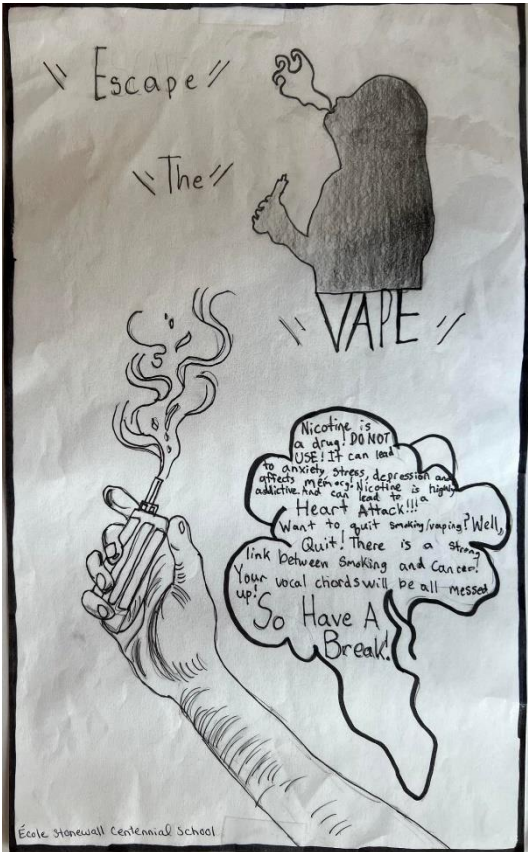 Escape
The
VAPE
Nicotine is
a drug! DO NOT
USE! It can lead
to anxiety, stress, depression and
affects memory! Nicotine is highly
addictive. And can lead to a
Heart Attack!!!
Want to quit smoking/vaping? Well,
Quit! There is a strong
link between smoking and cancer!
Your vocal chords will be all messed
up!
So Have A
Break!
École Stonewall Centennial School